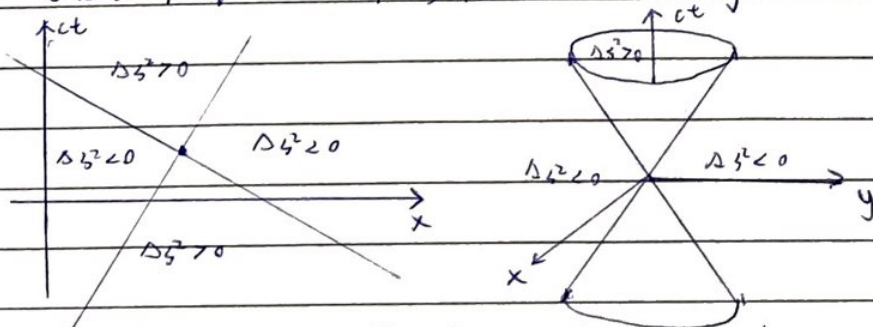 ct
Δs²>0
Δs²<0
Δs²<0
Δs²>0
x
ct
Δs²>0
Δs²<0
Δs²<0
y
x